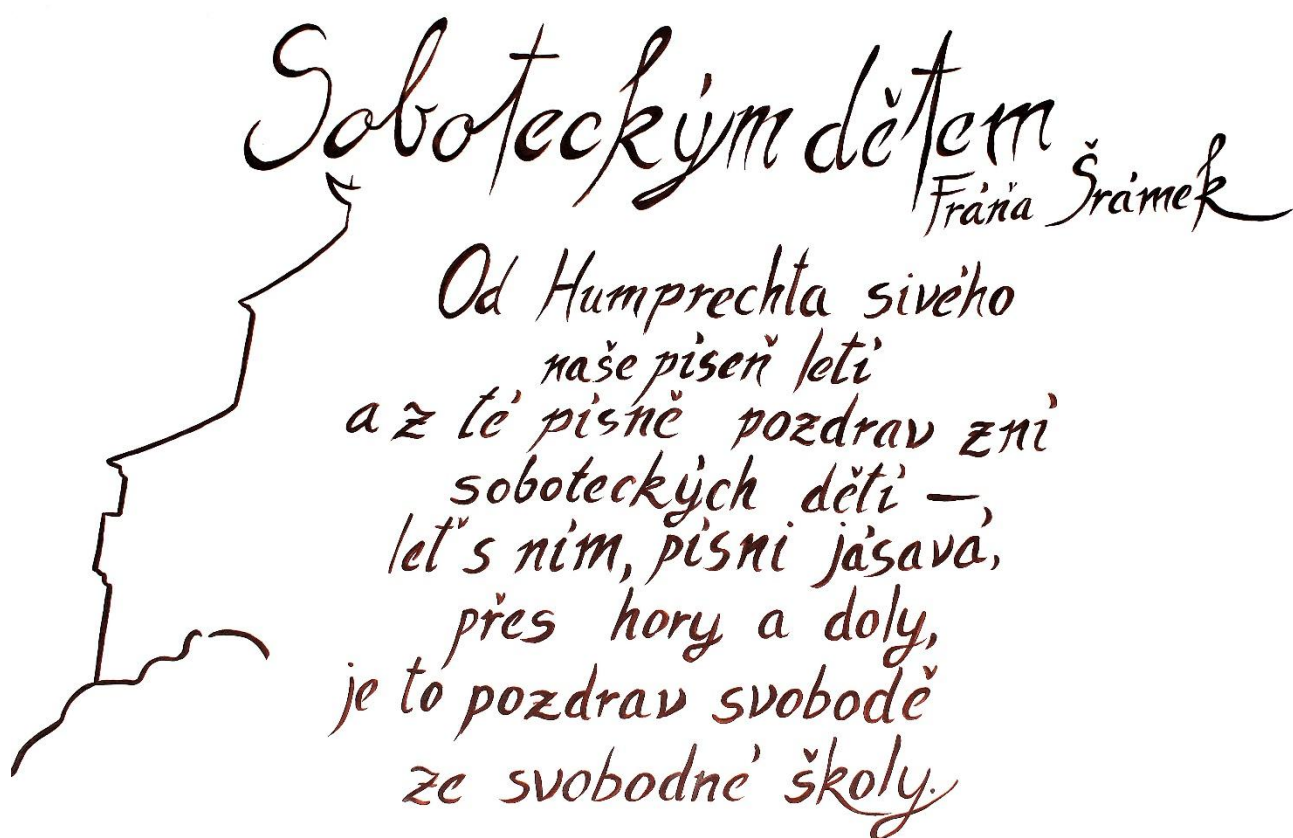 Soboteckým dětem
Fráňa Šrámek
Od Humprechta sivého
naše píseň letí
a z té písně pozdrav zní
soboteckých dětí —
leť s ním, písni jásavá,
přes hory a doly,
je to pozdrav svobodě
ze svobodné školy.